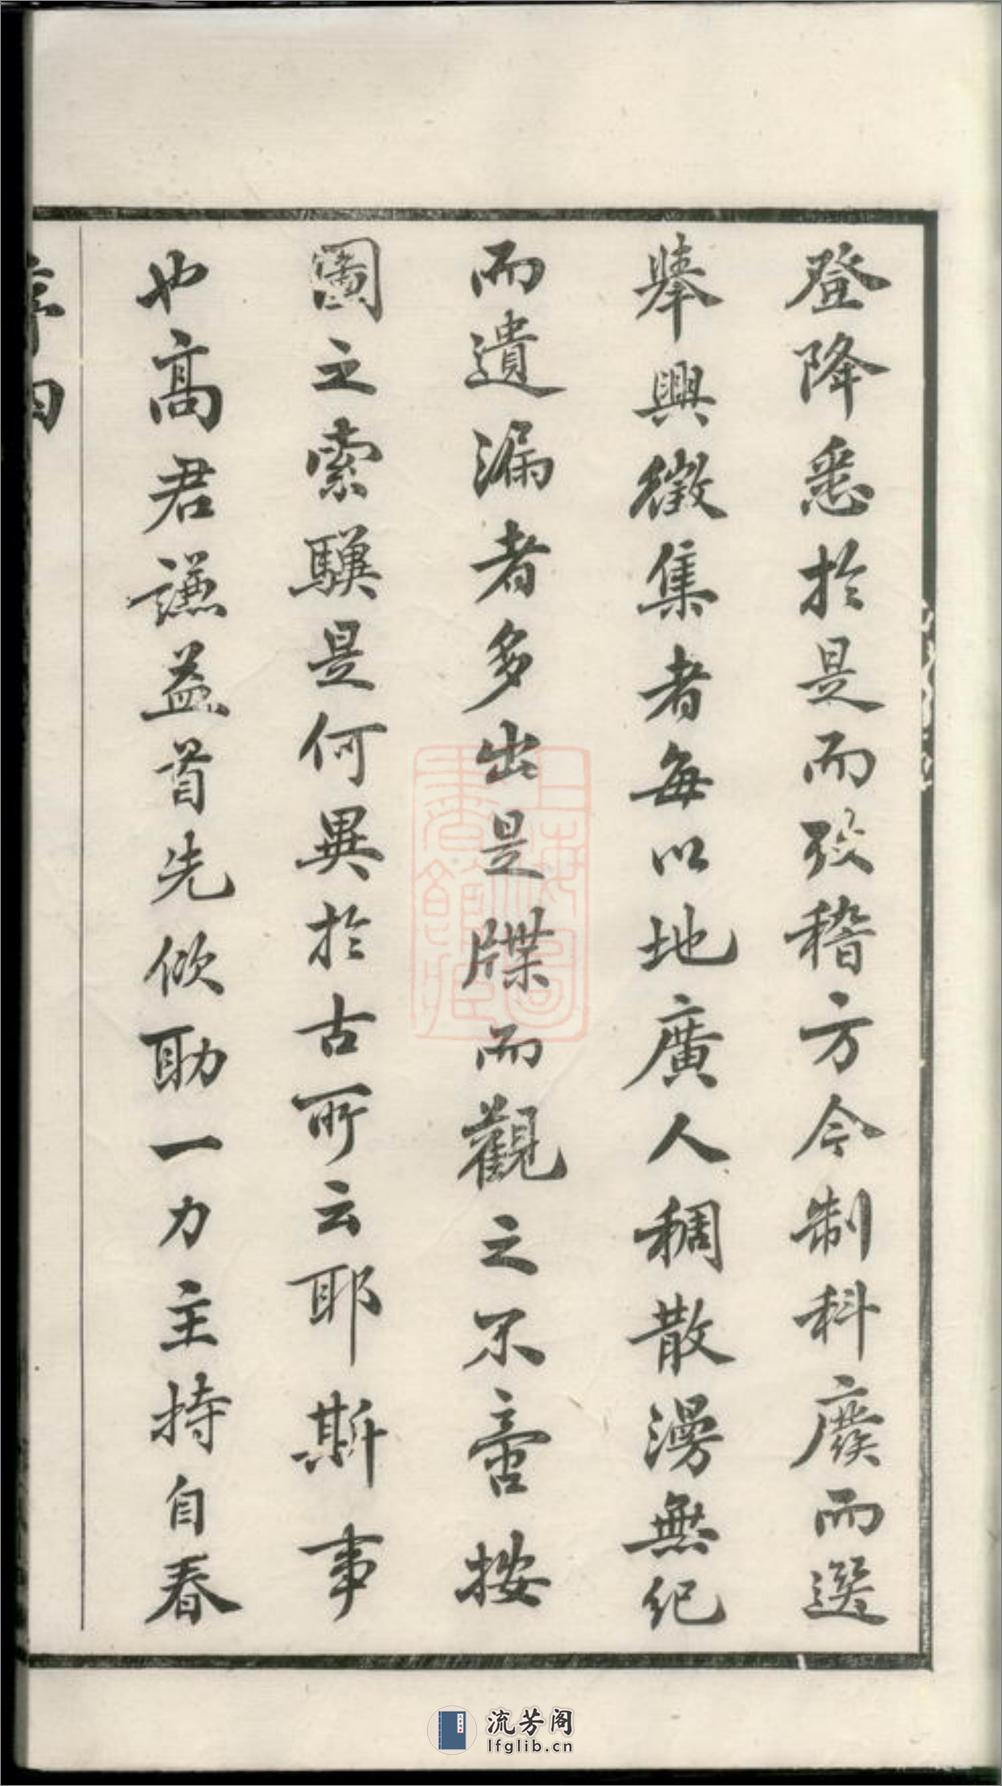 登降悉於是而攷稽方今制科廢而選
舉興徵集者每以地廣人稠散漫無紀
而遺漏者多出是牒而觀之不啻按
圖之索驥是何異於古所云耶斯事
也高君謙益首先倣助一力主持自春
序四
上海圖書館藏
流芳阁
lfglib.cn